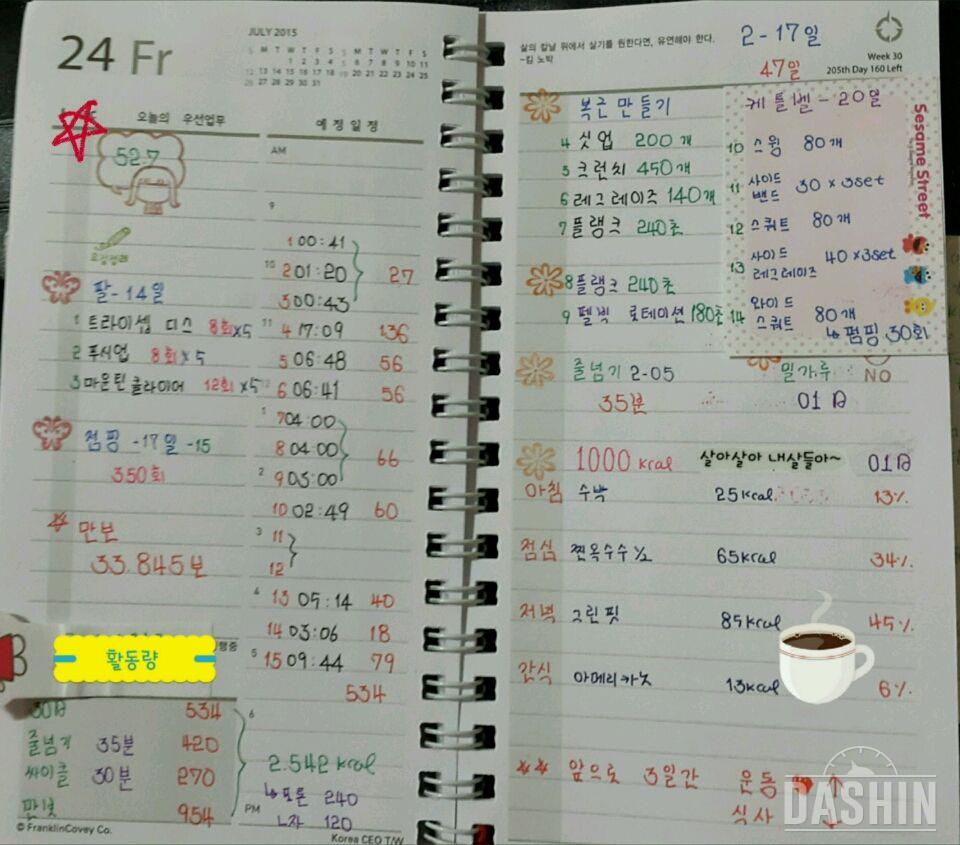 24 Fr
JULY 2015
S M T W T F S S M T W T F S
1 2 3 4 5 6 7 8 9 10 11
12 13 14 15 16 17 18 19 20 21 22 23 24 25
26 27 28 29 30 31
오늘의 우선업무
52.7
팔-14일
1 트라이셉 딥스 8회x5
2 푸시업 8회x5
3 마운틴클라이머 12회x5
점핑-17일-15
350회
만보
33.845보
활동량
30일 534
줄넘기 35분 420
싸이클 30분 270
만보 954
© FranklinCovey Co.
예정일정
AM
9
1 00:41
10 2 01:20 27
3 00:43
11 4 17:09 136
5 06:48 56
12 6 06:41 56
1 7 04:00
8 04:00 66
2 9 03:00
10 02:49 60
3 11
12
4 13 05:14 40
14 03:06 18
5 15 09:44 79
534
6
2.542 kcal
↳토론 240
PM ㄴ자 120
Korea CEO T/W
삶의 칼날 위에서 살기를 원한다면, 유연해야 한다.
-킴 노박
2-17일
47일
Week 30
205th Day 160 Left
복근만들기
4 싯업 200개
5 크런치 450개
6 레그레이즈 140개
7 플랭크 240초
8 플랭크 240초
9 펠빅 로테이션 180초
케틀벨-20일
10 스윙 80개
11 사이드 밴드 30x3set
12 스쿼트 80개
13 사이드 레그레이즈 40x3set
14 와이드 스쿼트 80개
↳펌핑 30회
Sesame Street
줄넘기 2-05
35분
밀가루 NO
01일
1000 kcal 살아살아 내살들아~ 01일
아침 수박 25kcal 13%
점심 찐옥수수 1/2 65kcal 34%
저녁 그린핏 85kcal 45%
간식 아메리카노 13kcal 6%
앞으로 3일간 운동 ↑
식사 ↓
DASHIN